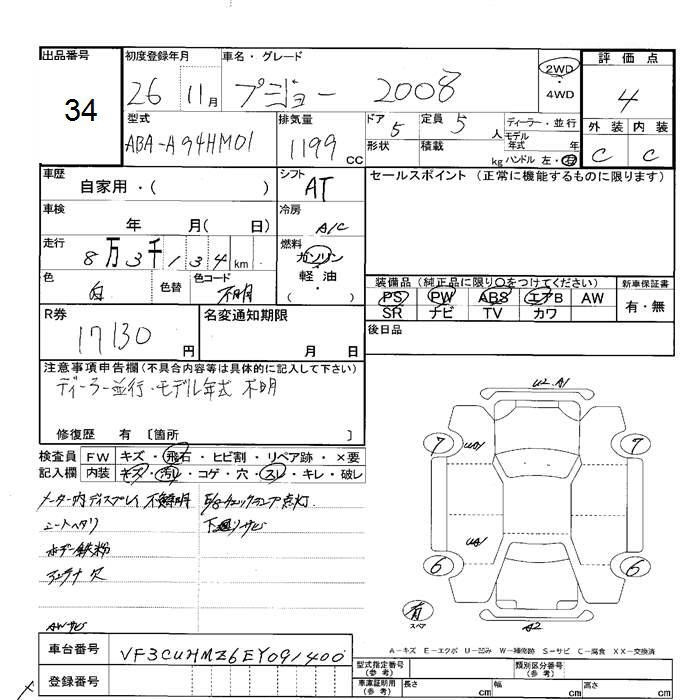 出品番号
34
初度登録年月
26 11月
車名・グレード
プジョー 2008
2WD
・
4WD
評価点
4
型式
ABA-A94HM01
排気量
1199 CC
ドア
5
定員
5 人
形状
積載
kg
ディーラー・並行
モデル
年式 年
ハンドル 左・右
外装
内装
C
C
車歴
自家用・( )
シフト
AT
セールスポイント (正常に機能するものに限ります)
車検
年 月( 日)
冷房
A/C
走行
8万3千134km
燃料
ガソリン
・
軽油
・
( )
色
白
色替
色コード
不明
装備品 (純正品に限り○をつけてください)
新車保証書
PS PW ABS エアB AW
有・無
SR ナビ TV カワ
R券
17130 円
名変通知期限
月 日
後日品
注意事項申告欄(不具合内容等は具体的に記入して下さい)
ディーラー並行・モデル年式 不明
修復歴 有 〔箇所 〕
検査員
記入欄
FW キズ・飛石・ヒビ割・リペア跡・×要
内装 キズ・汚れ・コゲ・穴・スレ・キレ・破レ
メーター内ディスプレイ不鮮明
E/gチェックランプ点灯.
シートヘタリ
下廻りサビ
ボデー鉄粉
アンテナ欠
AWサビ
U2.A1
7
7
UA1
UA1
6
6
有
スペア
A2
A-キズ E-エクボ U-凹み W-補修跡 S-サビ C-腐食 XX-交換済
車台番号
VF3CUHMZ6EY091400
登録番号
型式指定番号
(参考)
類別区分番号
(参考)
車庫証明用
(参考)
長さ cm
幅 cm
高さ cm